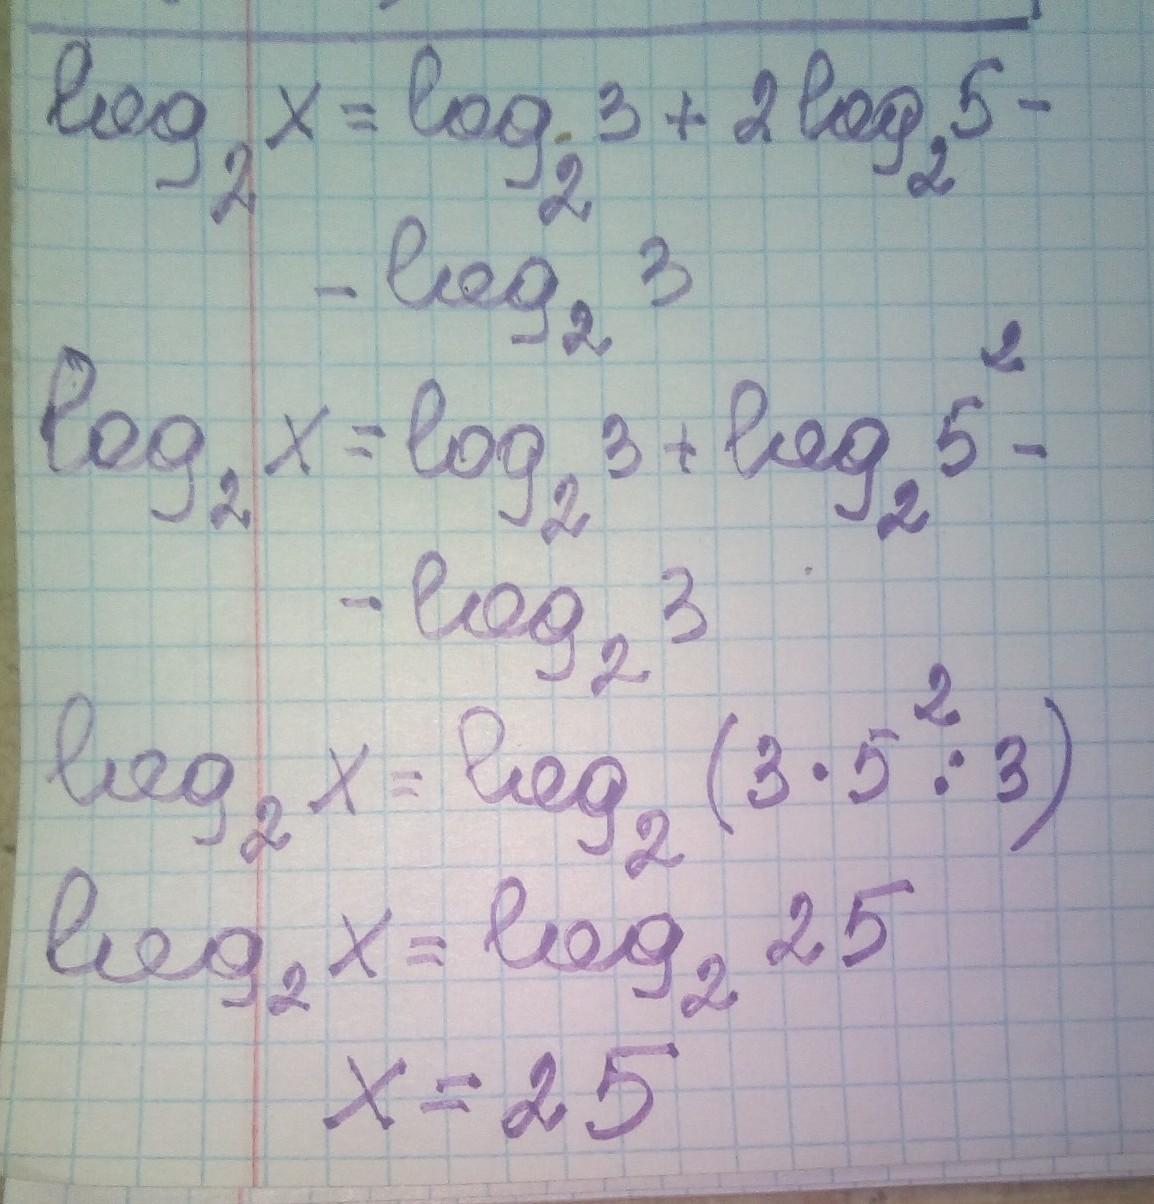 log₂ x = log₂ 3 + 2 log₂ 5 -
- log₂ 3
log₂ x = log₂ 3 + log₂ 5² -
- log₂ 3
log₂ x = log₂ (3 · 5² : 3)
log₂ x = log₂ 25
x = 25